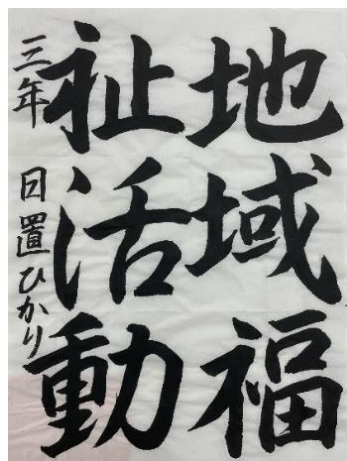 地域福
祉活動
三年 日置ひかり